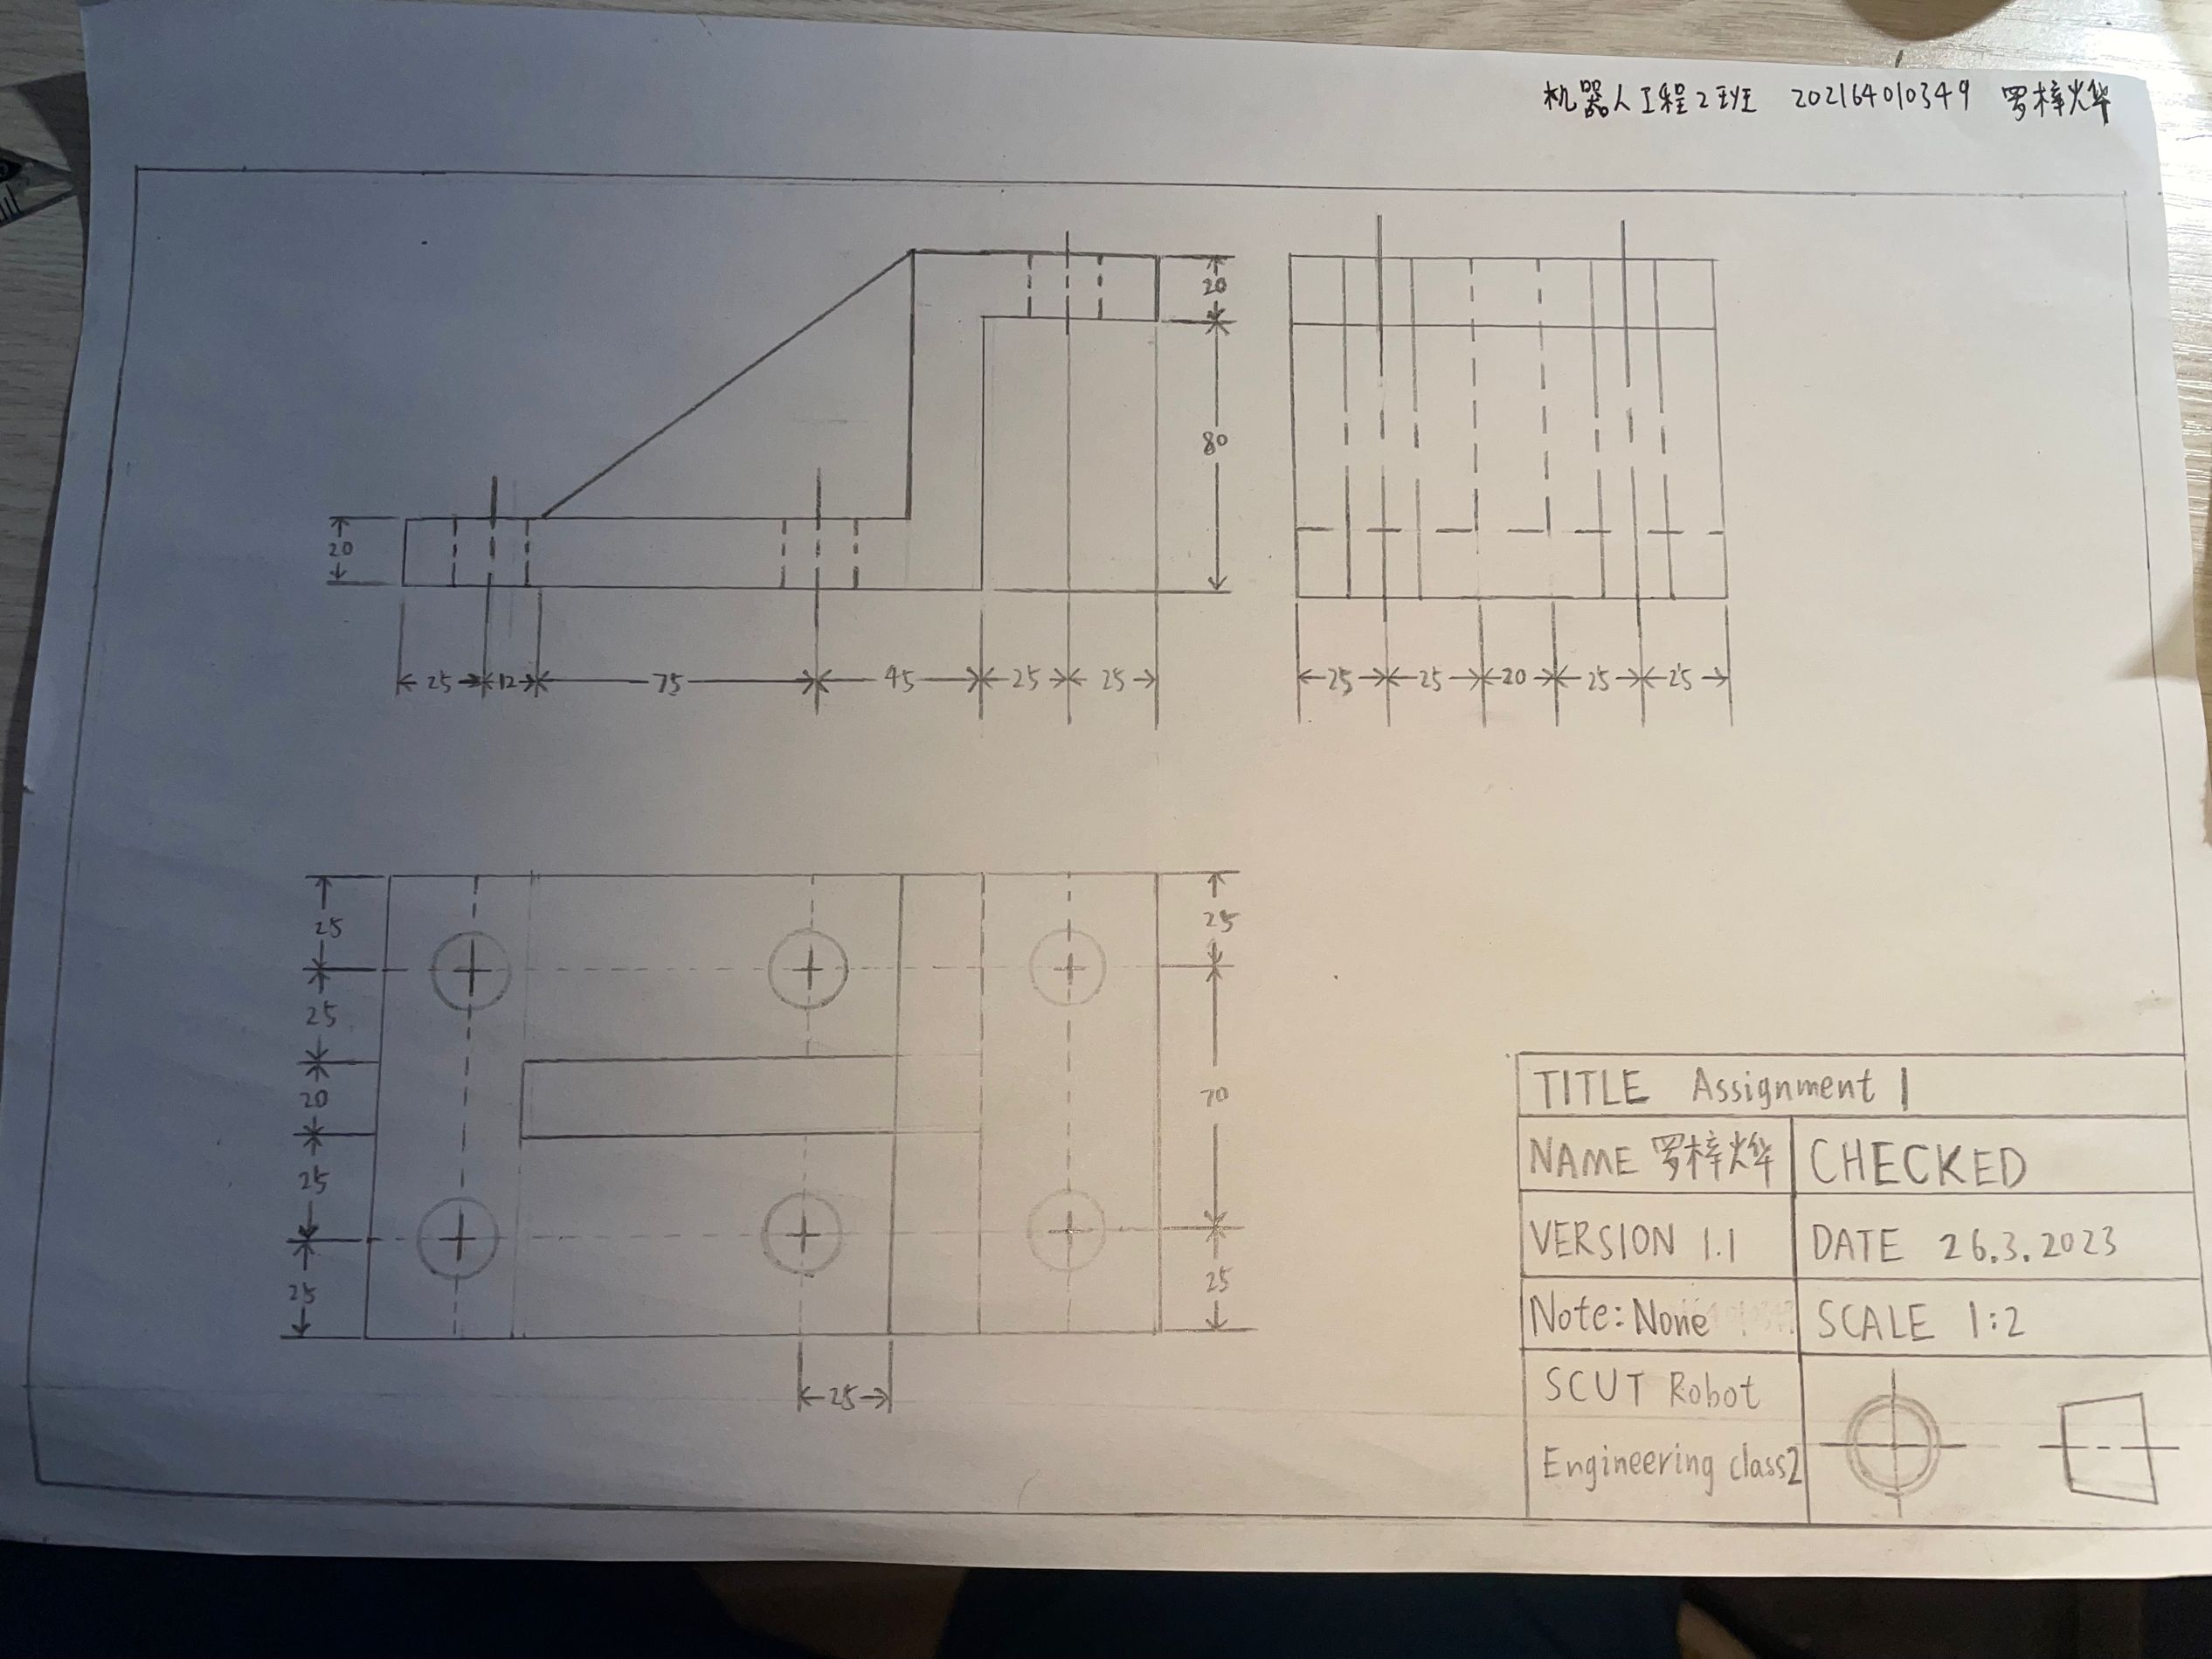 机器人工程2班 202164010349 罗梓烨
20
20
80
25 12 75 45 25 25
25 25 20 25 25
25
25
20
25
25
25
70
25
25
TITLE Assignment 1
NAME 罗梓烨 CHECKED
VERSION 1.1 DATE 26.3.2023
Note: None SCALE 1:2
SCUT Robot
Engineering class2